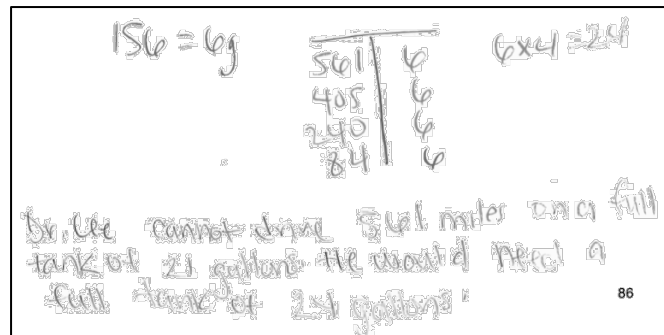 156 = 6g
561 | 6
405 | 6
240 | 6
84 | 6
6x4 = 24
Dr. Lee cannot drive 561 miles on a full
tank of 21 gallons He would need a
full tank of 24 gallons
86